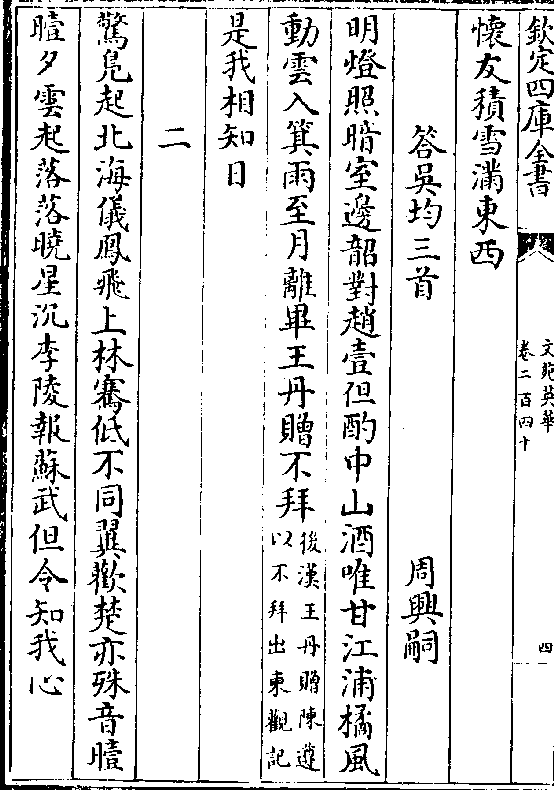 欽定四庫全書
文苑英華
卷二百四十
四
懷友積雪滿東西
答吳均三首 周興嗣
明燈照暗室邊韶對趙壹但酌中山酒唯甘江浦橘風
動雲入箕雨至月離畢王丹贈不拜後漢王丹贈陳遵
以不拜出東觀記
是我相知日
二
驚鳧起北海儀鳳飛上林騫低不同翼歡楚亦殊音曀
曀夕雲起落落曉星沉李陵報蘇武但令知我心